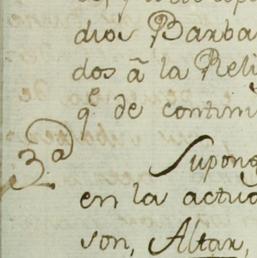 dios Barba
dos â la Reli
qᵉ de contin
3ª
Supong
en la actua
son, Altar,